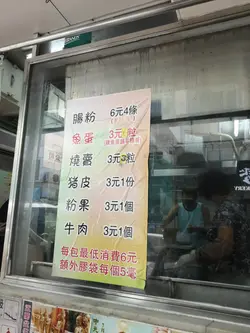 腸粉 6元4條
魚蛋 3元
燒賣 3元 粒
豬皮 3元1份
粉果 3元1個
牛肉 3元1個
每包最低消費6元
額外膠袋每個5毫